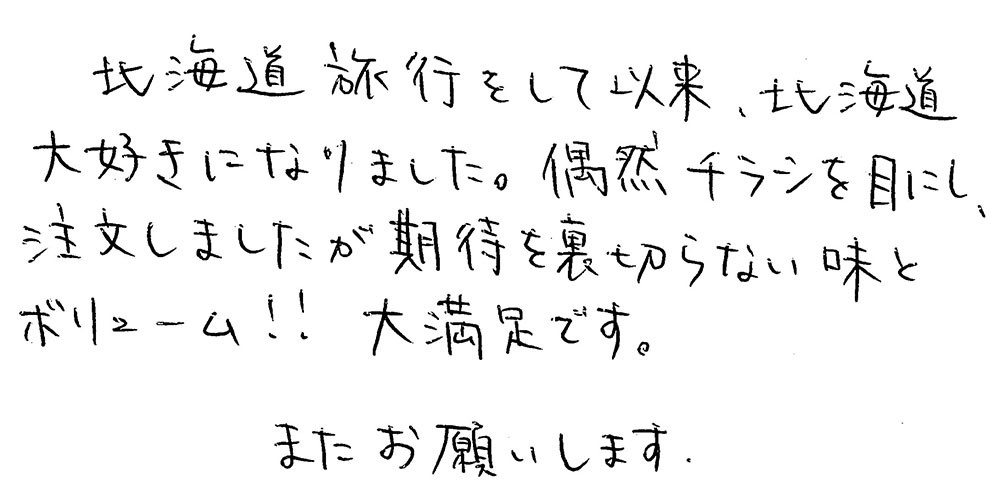 北海道旅行をして以来、北海道
大好きになりました。偶然チラシを目にし、
注文しましたが期待を裏切らない味と
ボリューム!! 大満足です。
またお願いします.